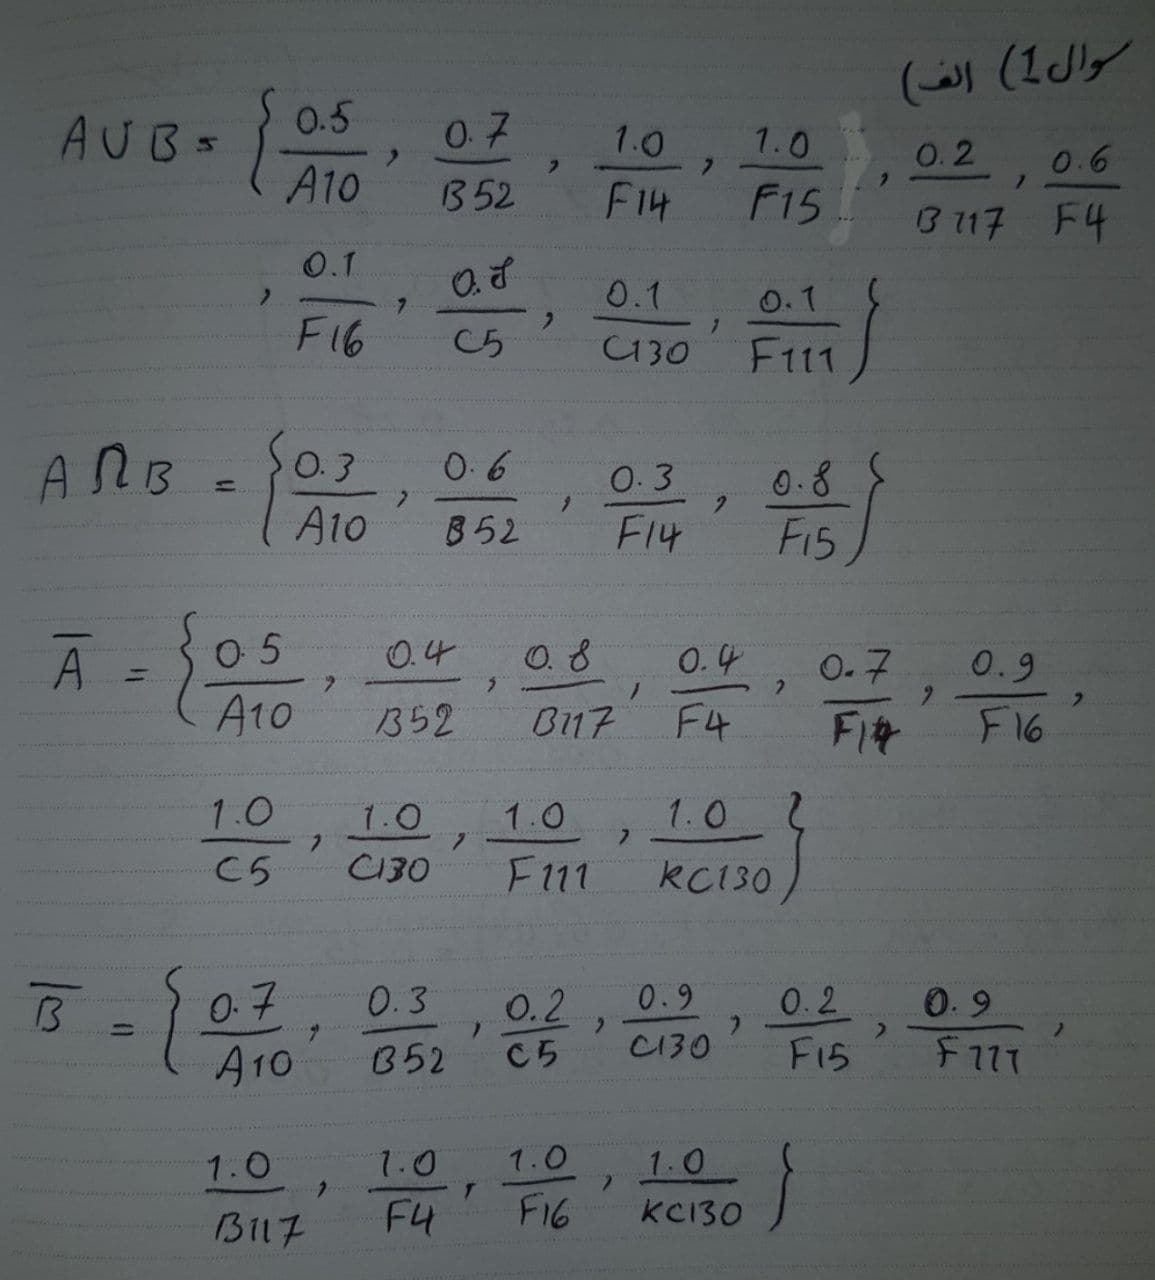 سوال 1) الف)
A∪B = { 0.5/A10 , 0.7/B52 , 1.0/F14 , 1.0/F15 , 0.2/B117 , 0.6/F4
, 0.1/F16 , 0.8/C5 , 0.1/C130 , 0.1/F111 }
A∩B = { 0.3/A10 , 0.6/B52 , 0.3/F14 , 0.8/F15 }
A̅ = { 0.5/A10 , 0.4/B52 , 0.8/B117 , 0.4/F4 , 0.7/F14 , 0.9/F16 ,
1.0/C5 , 1.0/C130 , 1.0/F111 , 1.0/KC130 }
B̅ = { 0.7/A10 , 0.3/B52 , 0.2/C5 , 0.9/C130 , 0.2/F15 , 0.9/F111 ,
1.0/B117 , 1.0/F4 , 1.0/F16 , 1.0/KC130 }